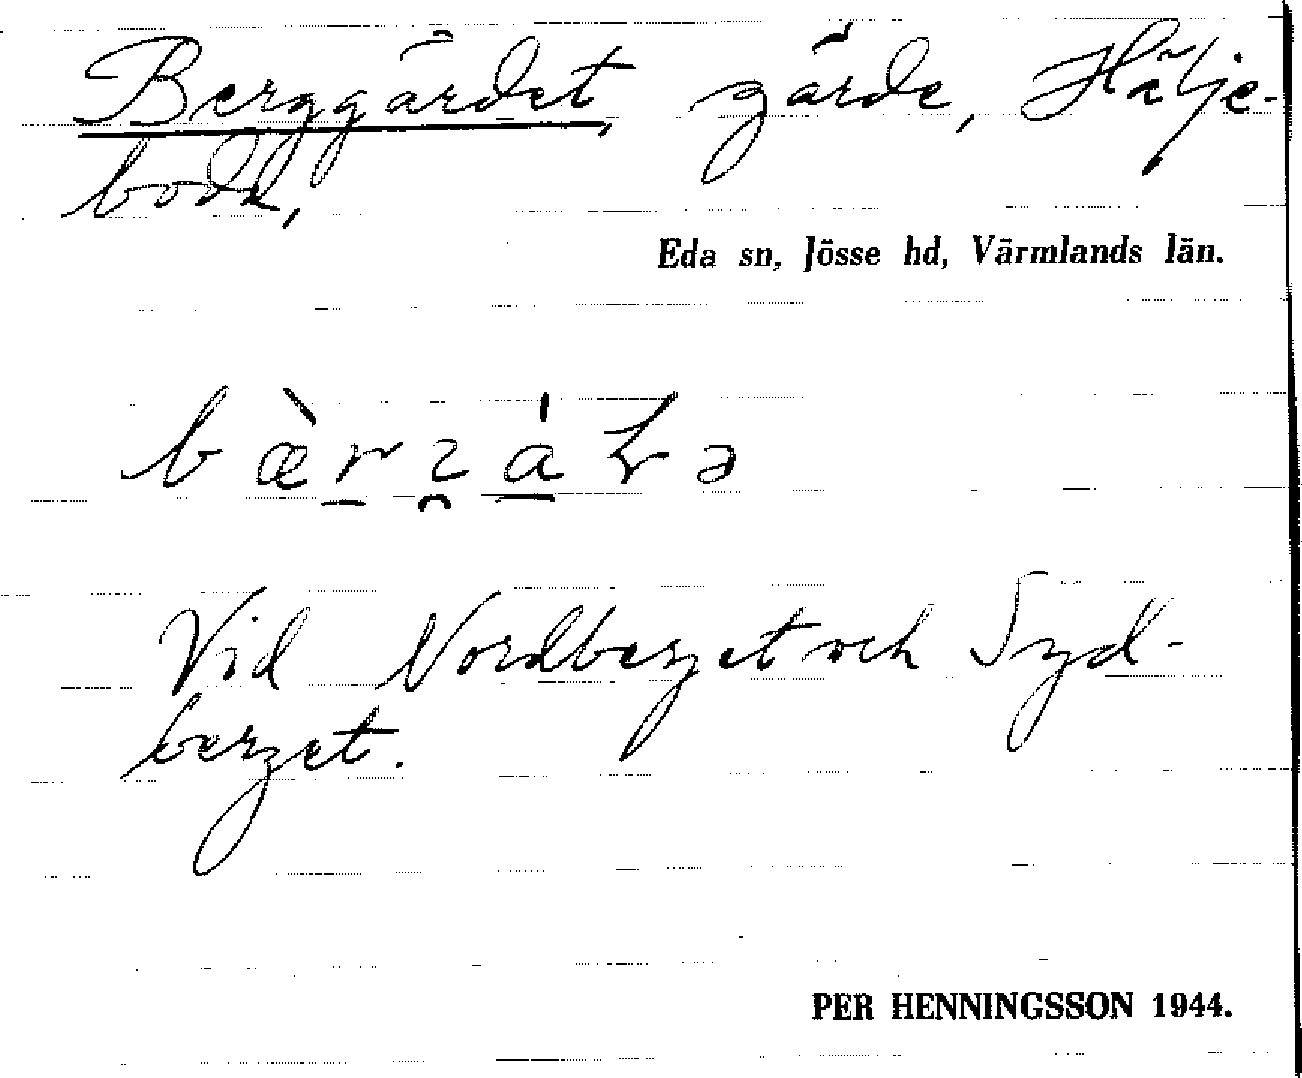 Berggärdet, gärde, Hälje-
boda,
Eda sn, Jösse hd, Värmlands län.
Vid Nordberget och Syd-
berget.
PER HENNINGSSON 1944.